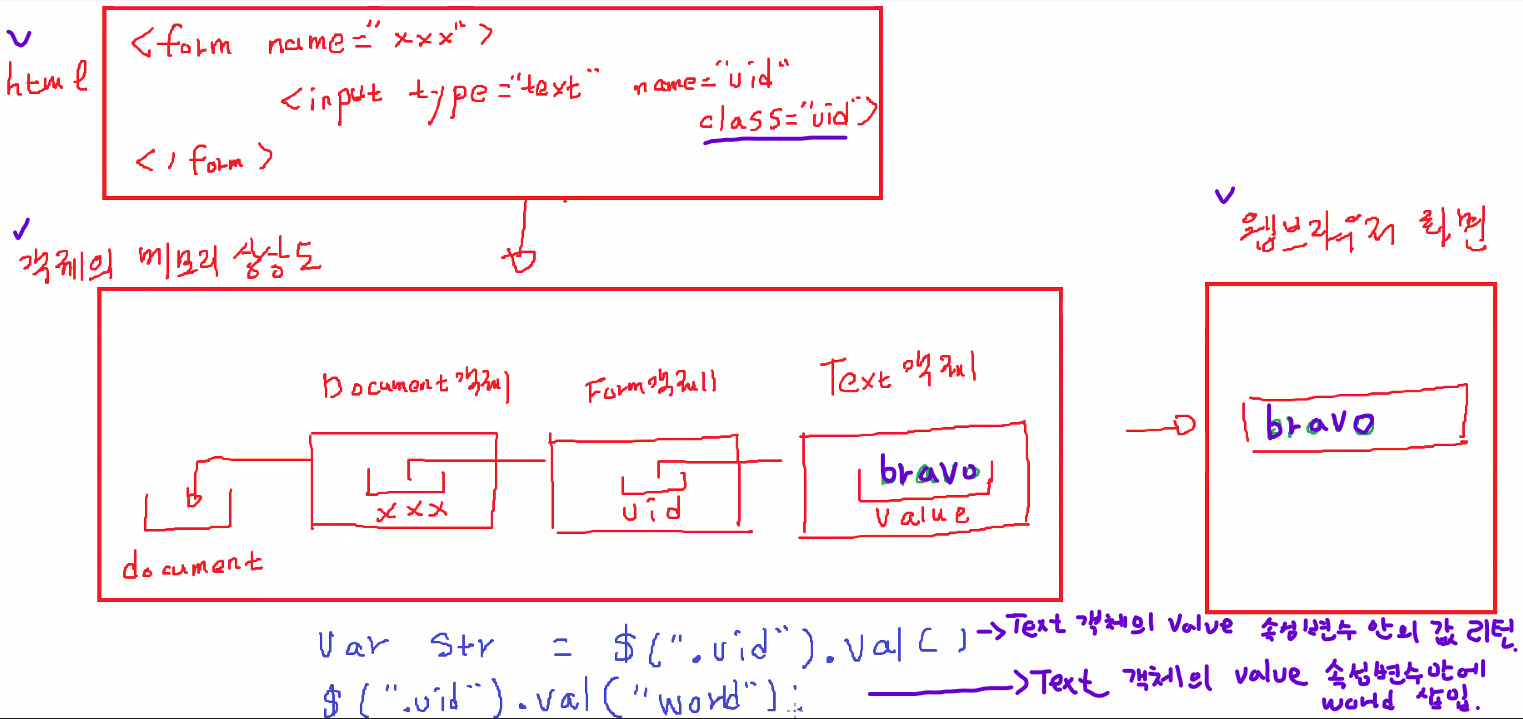 html
<form name="xxx">
<input type="text" name="uid"
class="uid">
</form>
객체의 메모리 상상도
웹브라우저 화면
Document 객체
Form객체
Text 객체
bravo
bravo
xxx
uid
value
document
Var str = $(".uid").val() ->Text 객체의 value 속성변수 안의 값 리턴.
$(".uid").val("world"); ->Text 객체의 value 속성변수안에
world 삽입.